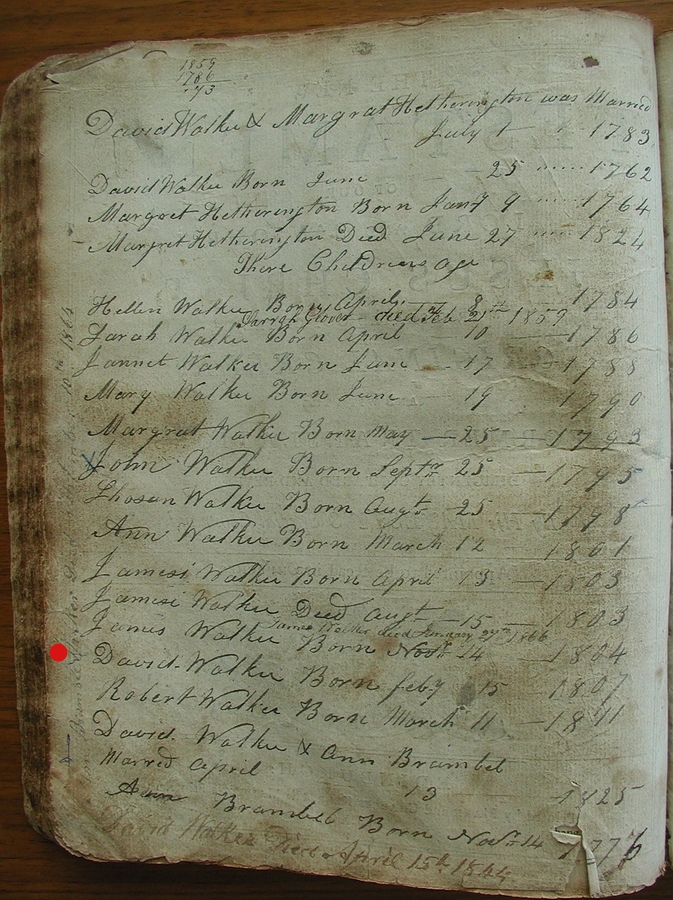 1859
1786
73
David Walker & Margrat Hetherington was Married
July 1 1783
David Walker Born June 25 1762
Margret Hetherington Born Jany 9 1764
Margret Hetherington Died June 27 1824
There Childrens age
Hellen Walker Born April 8 1784
Sarrah Glover died Feb 21th 1859
Sarah Walker Born April 10 1786
Jannet Walker Born June 17 1788
Mary Walker Born June 19 1790
Margrat Walker Born May 25 1793
John Walker Born Septr 25 1795
Walker Born Augt 25 1798
Ann Walker Born March 12 1801
James Walker Born April 13 1803
Jamese Walker Deed Augt 15 1803
James Walker died January 27th 1866
James Walker Born Novr 14 1804
David Walker Born feby 15 1807
Robert Walker Born March 11 1811
David Walker & Ann Brambel
Marred April 13 1825
Ann Brambel Born Novr 14 1776
David Walker Died April 15th 1864